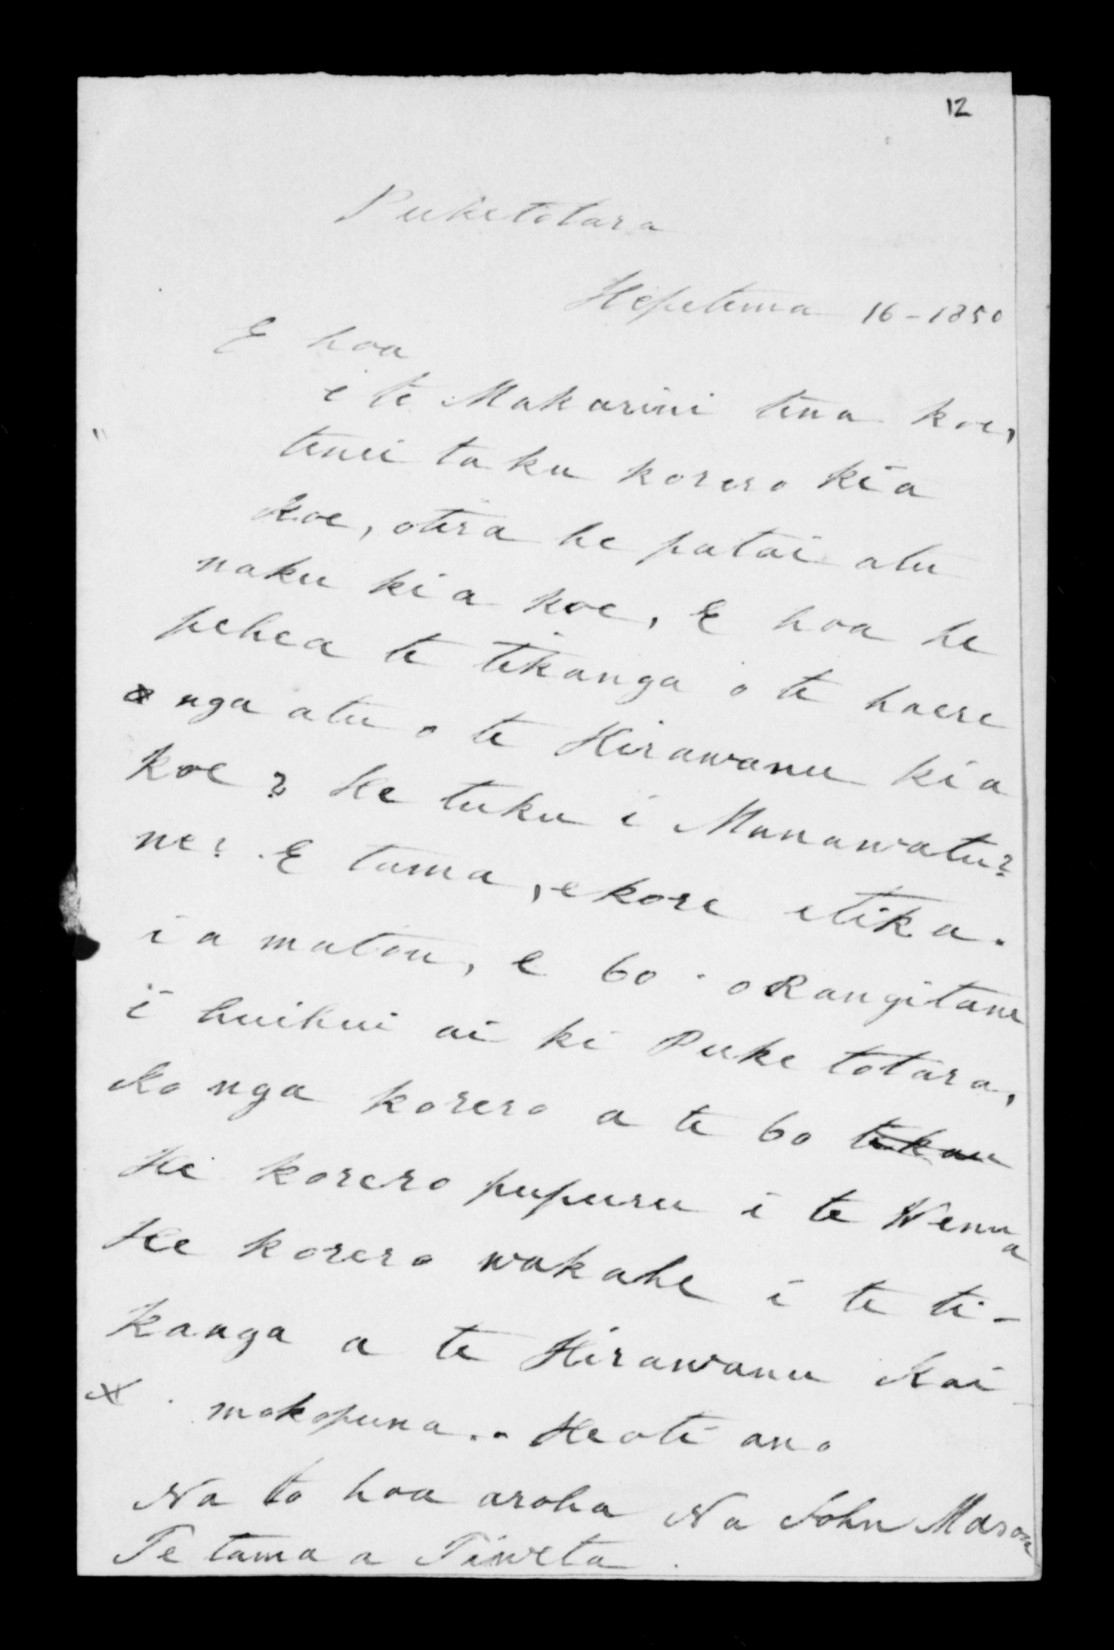 12
Puketotara
Hepetema 16-1850
E hoa
e te Makarini tena koe,
tenei taku korero kia
koe, otira he patai atu
naku kia koe, E hoa he
pehea te tikanga o te haere
nga atu o te Hirawanu kia
koe? He tuku i Manawatu?
ne? E tama, ekore etika.
i a matou, e 60 o Rangitane
i huihui ai ki Puke totara,
Ko nga korero a te 60 tekau
He korero pupuru i te Wenua
He korero wakahe i te ti-
kanga a te Hirawanu Kai
x mokopuna.. Heoti ano
Na to hoa aroha Na John Mason
Te tama a Tiweta.